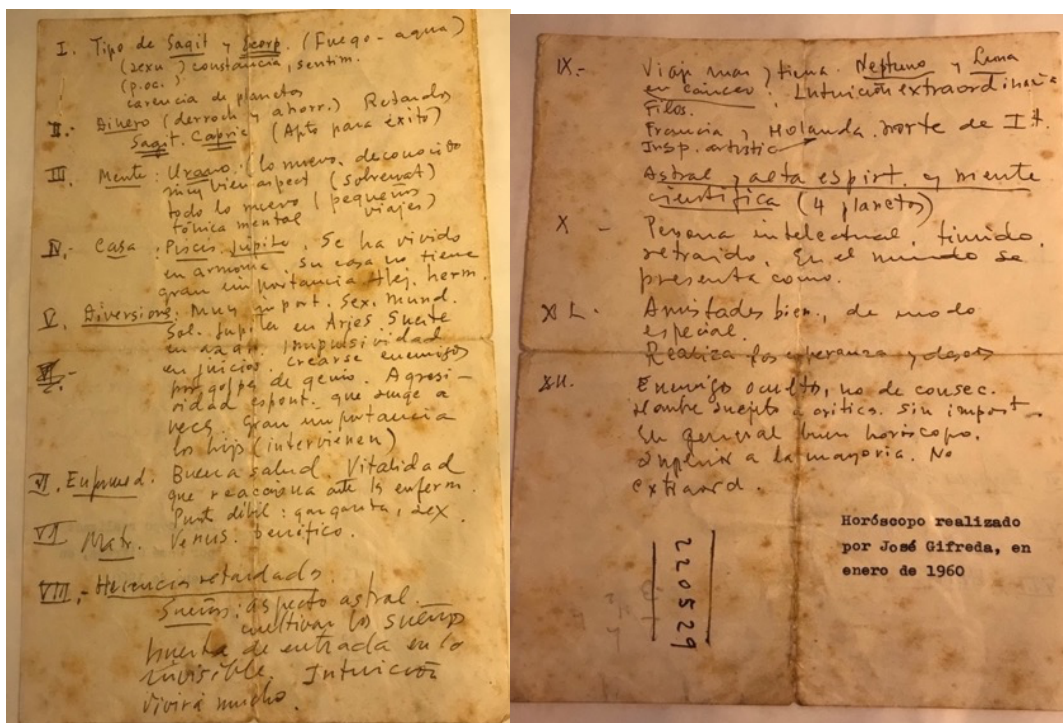 I. Tipo de Sagit y Scorp. (Fuego - agua)
(sexu.) constancia, sentim.
(p. oc.)
carencia de planetas
II.- Dinero (derroch y ahorr.) Retardos
Sagit. Capric (Apto para éxito)
III Mente: Urano. (lo nuevo. deconocido
muy bien aspect (sobrenat)
todo lo nuevo (pequeños
tónica mental viajes)
IV. Casa. Piscis Júpite. Se ha vivido
en armonía. Su casa no tiene
gran importancia. Alej. herm.
V. Diversione. Muy import. Sex. Mund.
Sol. Jupiter en Aries. Suerte
en azar. Impulsividad
en juicios. Crearse enemigos
por golpes de genio. Agresi-
vidad espont. que surge a
veces. Gran importancia
los hij (intervienen)
VI. Enfermed. Buena salud. Vitalidad
que reacciona ante la enferm.
Punt débil: garganta, sex.
VII Matr. Venus: benéfico.
VIII.- Herencias retardadas.
Sueños: aspecto astral.
cultivar los sueños
puerta de entrada en lo
invisible. Intuición
Vivirá mucho.
IX.- Viaj mar y tierra. Neptuno y Luna
en cáncer: Intuición extraordinaria
Filos.
Francia, Holanda. norte de It.
Insp. artistic
Astral y alta espirt. y mente
científica (4 planetas)
X - Persona intelectual, tímido,
retraído. En el mundo se
presenta como.
XI. Amistades bien, de modo
especial.
Realiza las esperanza y deseos
XII. Enemigo oculto, no de consec.
Hombre sujeto a crítica. sin import.
En general buen horóscopo.
Superior a la mayoría. No
extraord.
220529
Horóscopo realizado
por José Gifreda, en
enero de 1960